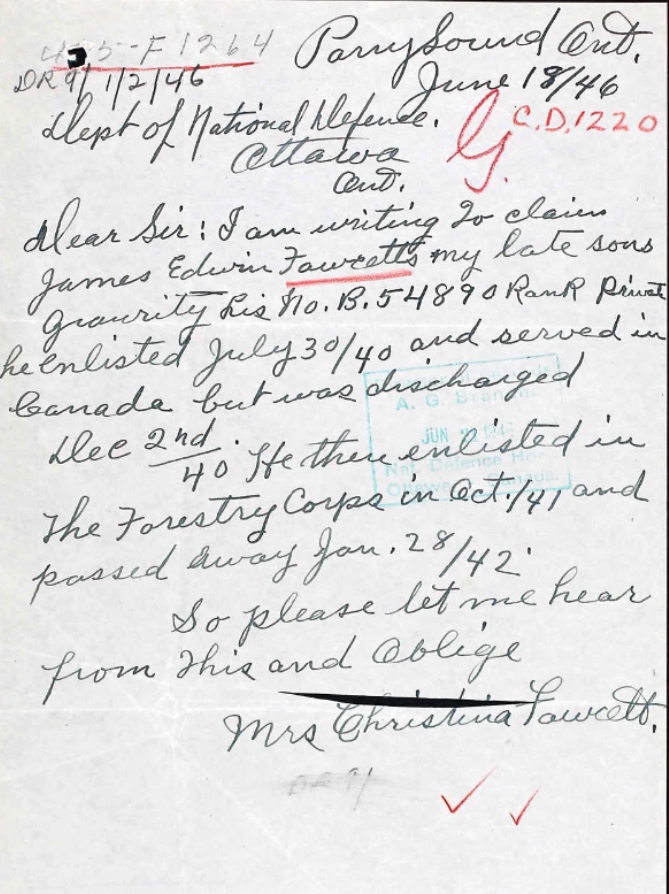 5-F1264
Parry Sound Ont.
DR 9/1/2/46
June 18/46
Dept of National Defence.
C.D.1220
Ottawa
G.
Ont.
Dear Sir: I am writing To claim
James Edwin Fawcetts my late sons
Graurity his No. B. 54890 Rank Privat
he enlisted July 30/40 and served in
Canada but was discharged
A. G. Branch
Dec 2nd/40 He then enlisted in
JUN
Nat. Defence
Ottawa, Canada.
The Forestry Corps in Oct./41 and
passed away Jan. 28/42.
So please let me hear
from This and Oblige
Mrs Christina Fawcett.